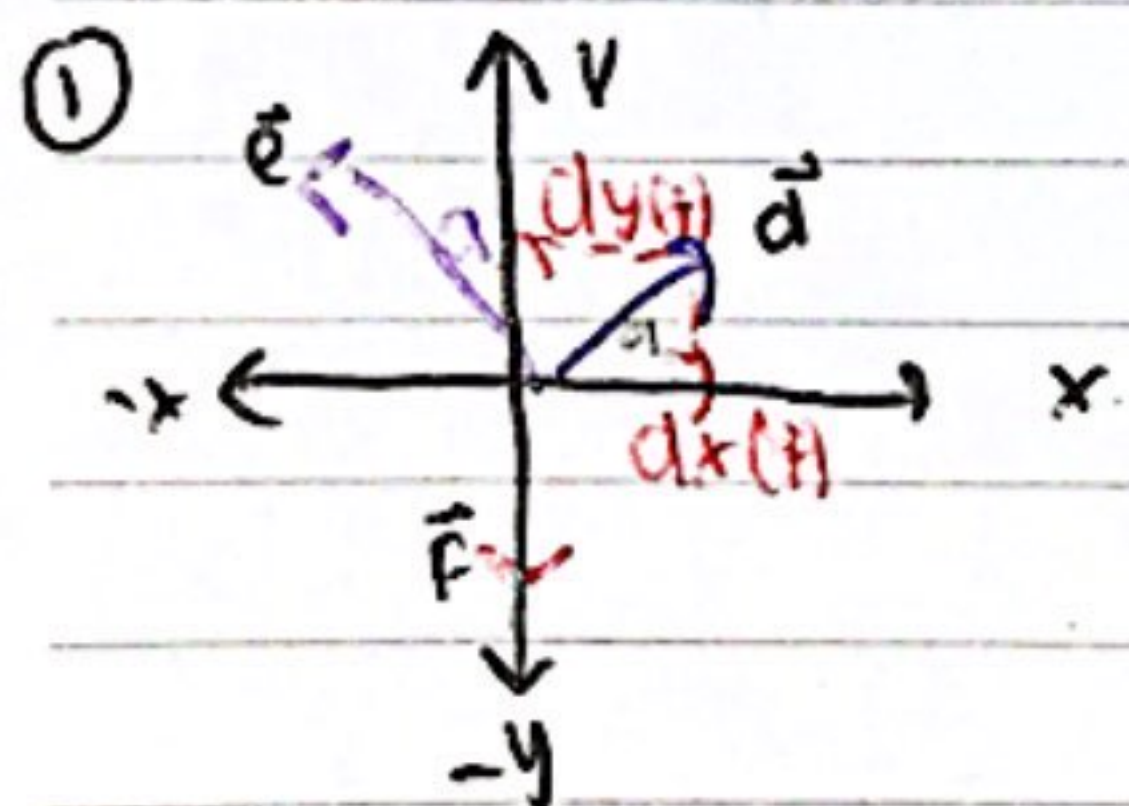 ①
y
e⃗
dy(+)
d⃗
-x
x
dx(+)
F⃗
-y